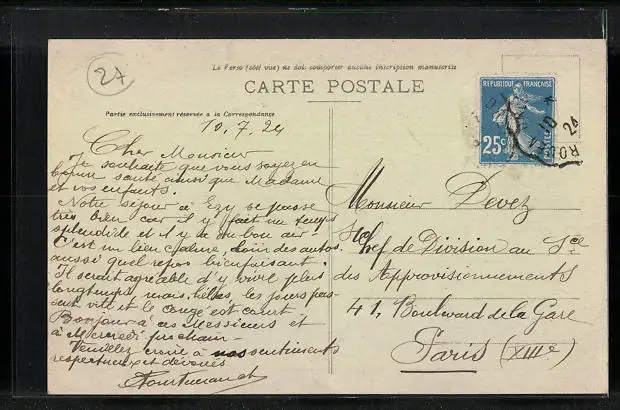 27
Le Verso (côté vue) ne doit comporter aucune inscription manuscrite
CARTE POSTALE
Partie exclusivement réservée à la Correspondance
10.7.24
Cher Monsieur
Je souhaite que vous soyez en
bonne santé ainsi que Madame
et vos enfants.
Notre séjour à Ezy se passe
très bien car il y fait un temps
splendide et il y a du bon air.
C'est un lieu calme, loin des autos
aussi quel repos bienfaisant.
Il serait agréable d'y vivre plus
longtemps mais, hélas, les jours pas-
sent vite et le congé est court
Bonjour à ces Messieurs et
à Mercredi prochain.
Veuillez croire à nos sentiments
respectueux et dévoués
REPUBLIQUE FRANÇAISE
25c
POSTES
24
Monsieur Devez
Chef de Division au Sce
des Approvisionnements
41, Boulevard de la Gare
Paris (XIIIe)